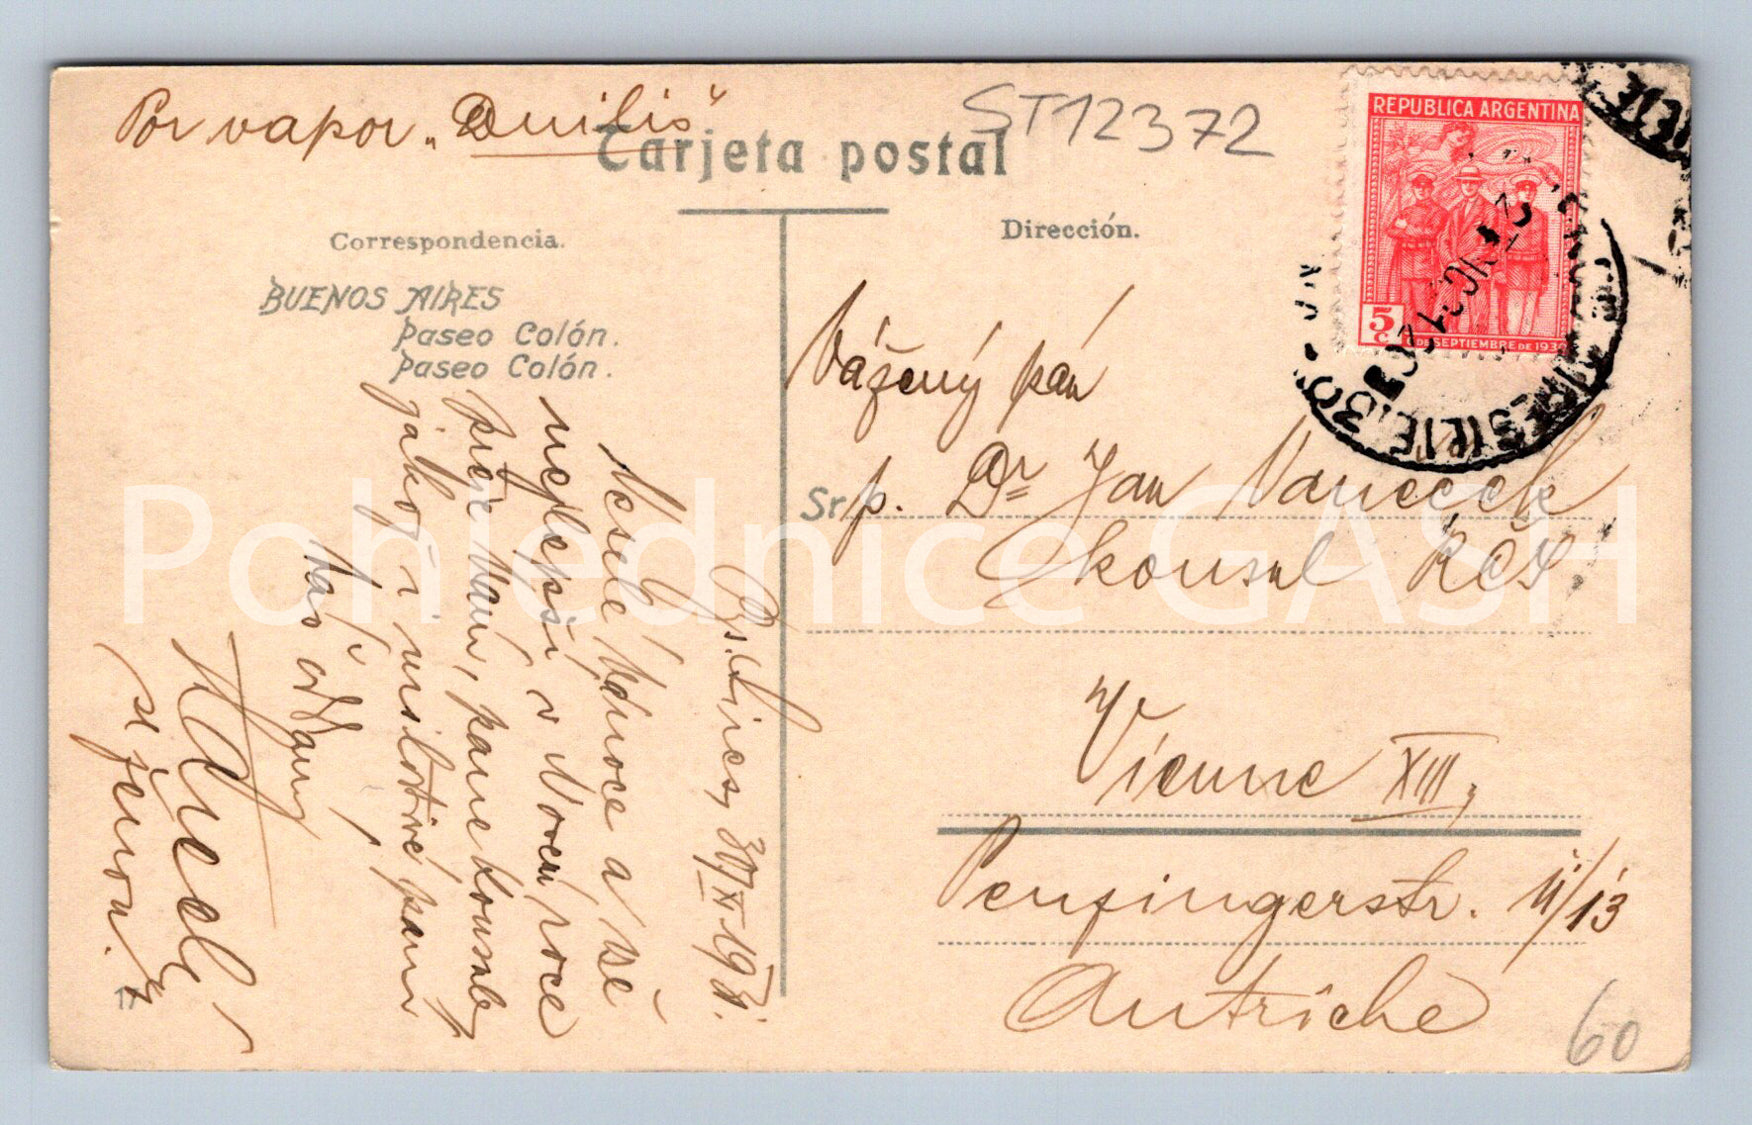 Por vapor „Duiliš"
ST12372
Tarjeta postal
REPUBLICA ARGENTINA
5 c
6 DE SEPTIEMBRE DE 1930
Correspondencia.
Dirección.
BUENOS AIRES
Paseo Colón.
Paseo Colón.
Bs. Aires, 30/XI 1931.
Veselé Vánoce a vše
nejlepší v Novém roce
přeje Vám, pane konsule,
jakož i milostivé paní
Váš oddaný
s ženou.
17
Vážený pán
Sr p. Dr Jan Vaneček
konsul RČS
Vienne XIII,
Penzingerstr. 11/13
Autriche
60
Pohlednice GASH